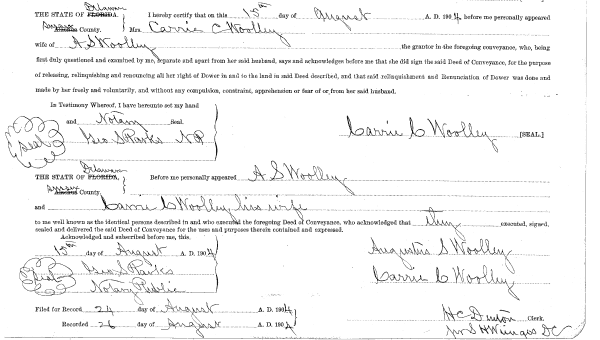 Delaware
THE STATE OF FLORIDA. I hereby certify that on this 15th day of August A. D. 1904, before me personally appeared
Sussex County. Mrs. Carrie C Woolley
wife of A S Woolley the grantor in the foregoing conveyance, who, being
first duly questioned and examined by me, separate and apart from her said husband, says and acknowledges before me that she did sign the said Deed of Conveyance, for the purpose
of releasing, relinquishing and renouncing all her right of Dower in and to the land in said Deed described, and that said relinquishment and Renunciation of Dower was done and
made by her freely and voluntarily, and without any compulsion, constraint, apprehension or fear of or from her said husband.
In Testimony Whereof, I have hereunto set my hand
and Notary Seal.
Seal Geo S Parks NP Carrie C Woolley [SEAL.]
Delaware
THE STATE OF FLORIDA. Before me personally appeared A S Woolley
Sussex County.
and Carrie C Woolley his wife
to me well known as the identical persons described in and who executed the foregoing Deed of Conveyance, who acknowledged that they executed, signed,
sealed and delivered the said Deed of Conveyance for the uses and purposes therein contained and expressed.
Acknowledged and subscribed before me, this
15th day of August A. D. 1904 Augustus S Woolley
Seal Geo. S Parks Carrie C Woolley
Notary Public
Filed for Record 24 day of August A. D. 1904
H C Clerk.
Recorded 26 day of August A. D. 1904 DC